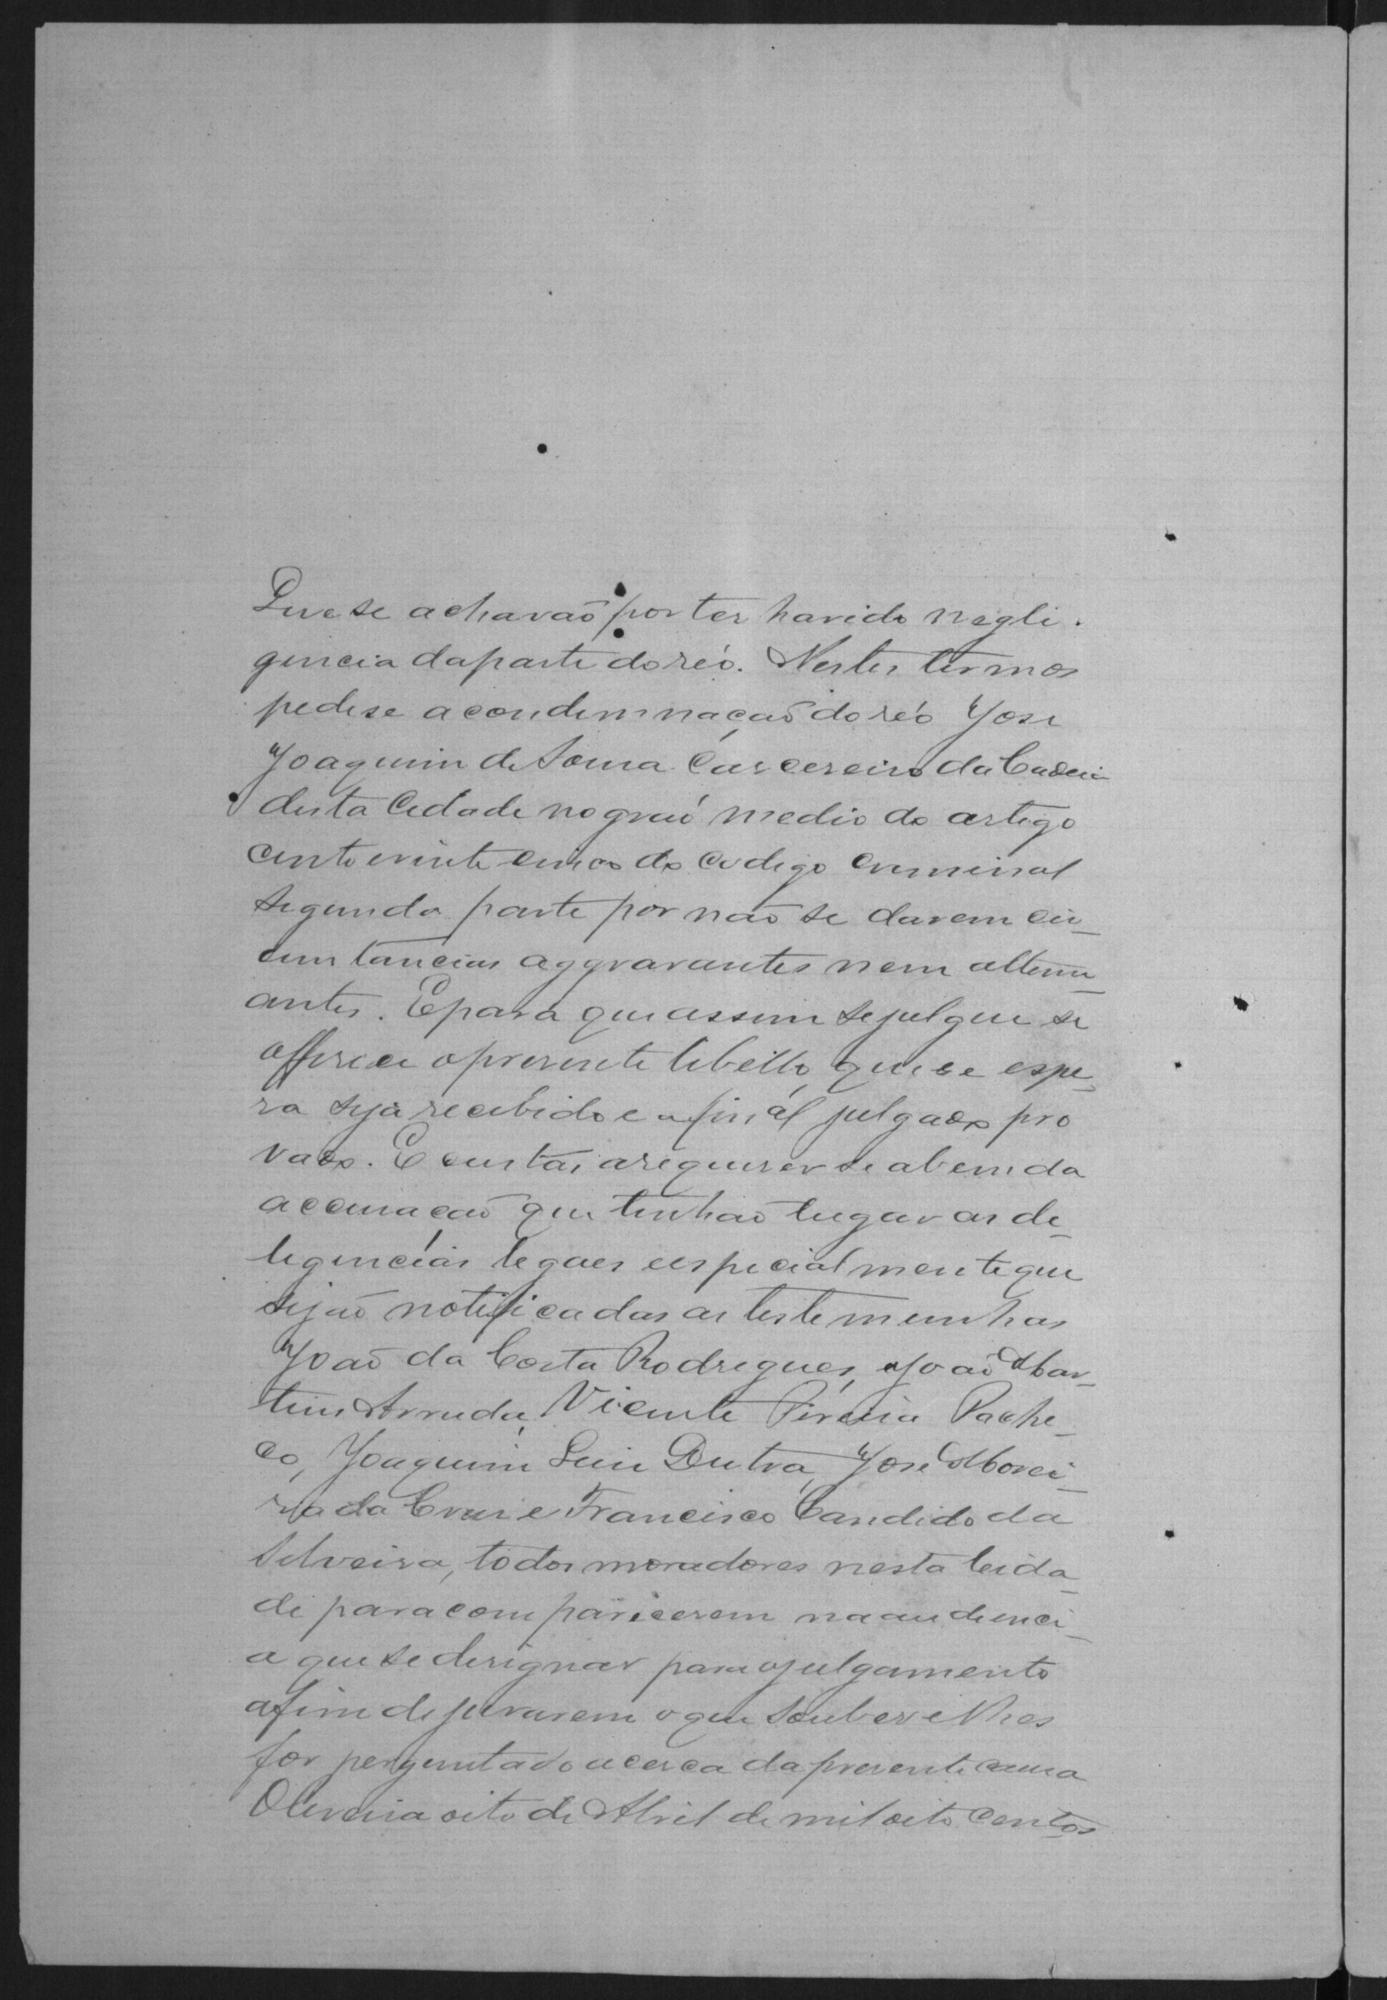 Que se achavaõ por ter havido negli-
gencia da parte do réo. Nestes termos
pedese a condemnaçaõ do réo Jose
Joaquim de Sousa Carcereiro da Cadeia
desta Cidade no gráo medio do artigo
cento e vinte cinco do codigo criminal
segunda parte por naõ se darem cir-
cumstancias aggravantes nem attenu-
antes. E para que assim se julgue se
offerece o presente libello, que se espe-
ra seja recebido e afinál julgado pro
vado. E custas a requerer se a bem da
accusaçaõ que tenhaõ lugar as de-
ligencias legaes e especialmente que
sejaõ notificadas as testemunhas
Joaõ da Costa Rodrigues, Joaõ Mar-
tins Arruda, Vicente Pereira Pache-
co, Joaquim Luis Dutra, José Morei-
ra da Crus e Francisco Candido da
Silveira, todos moradores nesta Cida-
de para comparecerem na audienci-
a que se designar para o julgamento
afim de jurarem o que souber e lhes
for perguntado acerca da presente causa
Oliveira oito de Abril de mil oito centos